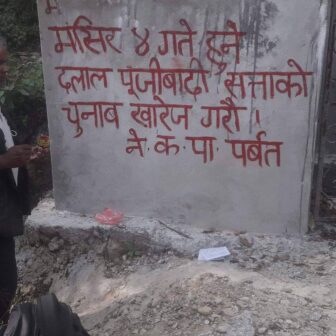 मंसिर ४ गते हुने
दलाल पूजीबादी सत्ताको
चुनाब खारेज गरौ ।
ने. क. पा. पर्बत